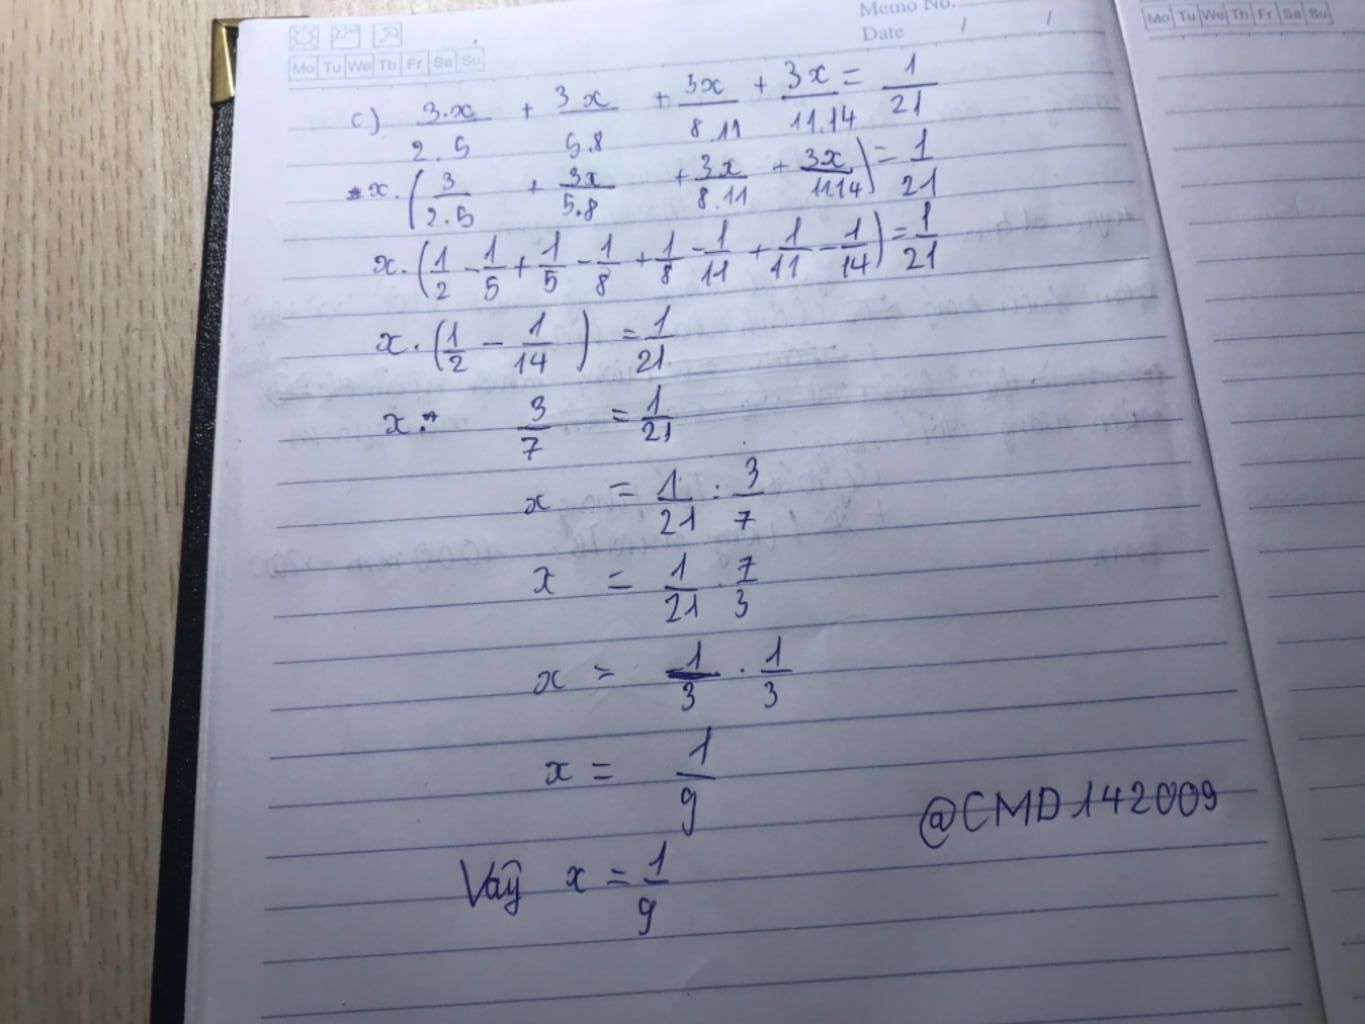 Memo No.
Date / /
Mo Tu We Th Fr Sa Su
Mo Tu We Th Fr Sa Su
c) 3.x/2.5 + 3x/5.8 + 3x/8.11 + 3x/11.14 = 1/21
x.(3/2.5 + 3x/5.8 + 3x/8.11 + 3x/11.14) = 1/21
x.(1/2 - 1/5 + 1/5 - 1/8 + 1/8 - 1/11 + 1/11 - 1/14) = 1/21
x.(1/2 - 1/14) = 1/21
x. 3/7 = 1/21
x = 1/21 : 3/7
x = 1/21 . 7/3
x = 1/3 . 1/3
x = 1/9
@CMD142009
Vậy x = 1/9